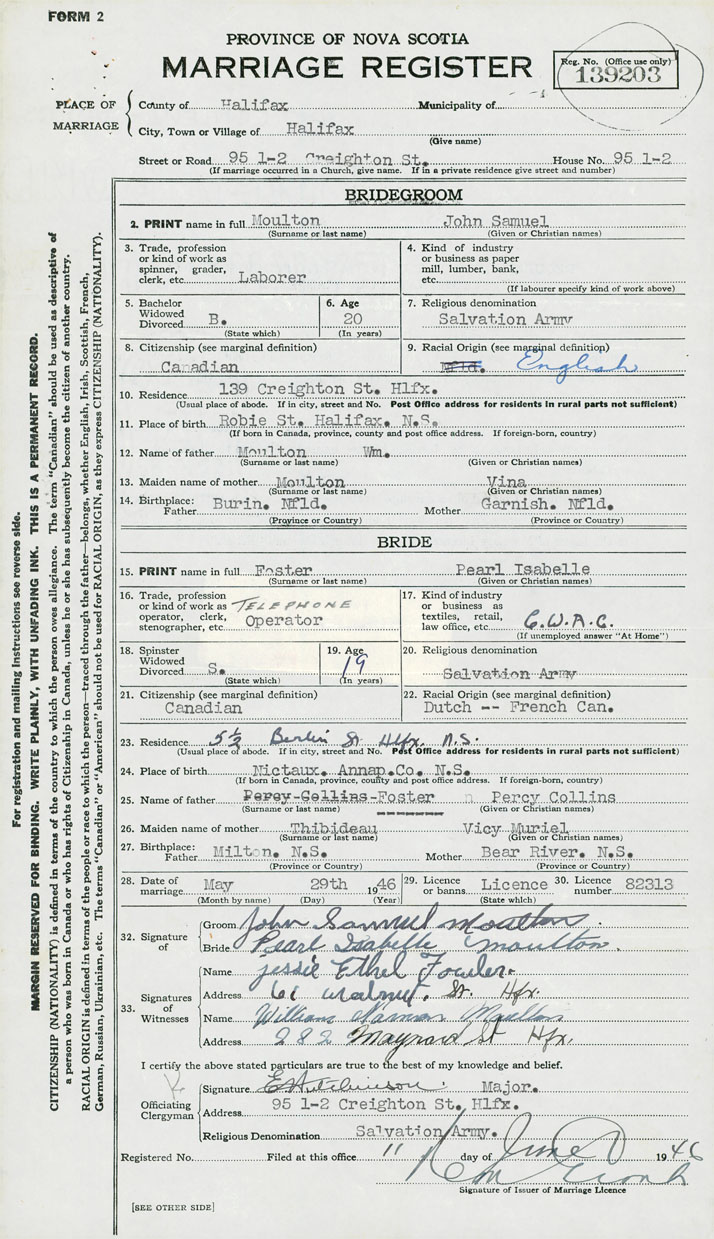 FORM 2
PROVINCE OF NOVA SCOTIA
MARRIAGE REGISTER
Reg. No. (Office use only)
139203
PLACE OF MARRIAGE
County of Halifax Municipality of
City, Town or Village of Halifax
(Give name)
Street or Road 95 1-2 Creighton St. House No. 95 1-2
(If marriage occurred in a Church, give name. If in a private residence give street and number)
BRIDEGROOM
2. PRINT name in full Moulton John Samuel
(Surname or last name) (Given or Christian names)
3. Trade, profession or kind of work as spinner, grader, clerk, etc. Laborer
4. Kind of industry or business as paper mill, lumber, bank, etc.
(If labourer specify kind of work above)
5. Bachelor Widowed Divorced B.
(State which)
6. Age 20
(In years)
7. Religious denomination
Salvation Army
8. Citizenship (see marginal definition)
Canadian
9. Racial Origin (see marginal definition)
Nfld. English
10. Residence 139 Creighton St. Hlfx.
(Usual place of abode. If in city, street and No. Post Office address for residents in rural parts not sufficient)
11. Place of birth Robie St. Halifax. N.S.
(If born in Canada, province, county and post office address. If foreign-born, country)
12. Name of father Moulton Wm.
(Surname or last name) (Given or Christian names)
13. Maiden name of mother Moulton Vina
(Surname or last name) (Given or Christian names)
14. Birthplace: Father Burin. Nfld. Mother Garnish. Nfld.
(Province or Country) (Province or Country)
BRIDE
15. PRINT name in full Foster Pearl Isabelle
(Surname or last name) (Given or Christian names)
16. Trade, profession or kind of work as operator, clerk, stenographer, etc. TELEPHONE Operator
17. Kind of industry or business as textiles, retail, law office, etc. C.W.A.C.
(If unemployed answer "At Home")
18. Spinster Widowed Divorced S.
(State which)
19. Age 19
(In years)
20. Religious denomination
Salvation Army
21. Citizenship (see marginal definition)
Canadian
22. Racial Origin (see marginal definition)
Dutch -- French Can.
23. Residence 5½ Berlin St Hlfx. N.S.
(Usual place of abode. If in city, street and No. Post Office address for residents in rural parts not sufficient)
24. Place of birth Nictaux. Annap.Co. N.S.
(If born in Canada, province, county and post office address. If foreign-born, country)
25. Name of father Percy-Collins-Foster Percy Collins
(Surname or last name) (Given or Christian names)
26. Maiden name of mother Thibideau Vicy Muriel
(Surname or last name) (Given or Christian names)
27. Birthplace: Father Milton. N.S. Mother Bear River. N.S.
(Province or Country) (Province or Country)
28. Date of marriage May 29th 1946
(Month by name) (Day) (Year)
29. Licence or banns Licence
(State which)
30. Licence number 82313
32. Signature of
Groom John Samuel Moulton.
Bride Pearl Isabelle Moulton.
33. Signatures of Witnesses
Name Jessie Ethel Fowler.
Address 61 Walnut. St. Hfx.
Name William Naman Moulton
Address 282 Maynard St Hfx.
I certify the above stated particulars are true to the best of my knowledge and belief.
Officiating Clergyman
Signature E Hutchinson. Major.
Address 95 1-2 Creighton St. Hlfx.
Religious Denomination Salvation Army.
Registered No. Filed at this office 11 day of June 1946
Signature of Issuer of Marriage Licence
[SEE OTHER SIDE]
For registration and mailing instructions see reverse side.
MARGIN RESERVED FOR BINDING. WRITE PLAINLY, WITH UNFADING INK. THIS IS A PERMANENT RECORD.
CITIZENSHIP (NATIONALITY) is defined in terms of the country to which the person owes allegiance. The term "Canadian" should be used as descriptive of
a person who was born in Canada or who has rights of Citizenship in Canada, unless he or she has subsequently become the citizen of another country.
RACIAL ORIGIN is defined in terms of the people or race to which the person—traced through the father—belongs, whether English, Irish, Scottish, French,
German, Russian, Ukrainian, etc. The terms "Canadian" or "American" should not be used for RACIAL ORIGIN, as they express CITIZENSHIP (NATIONALITY).